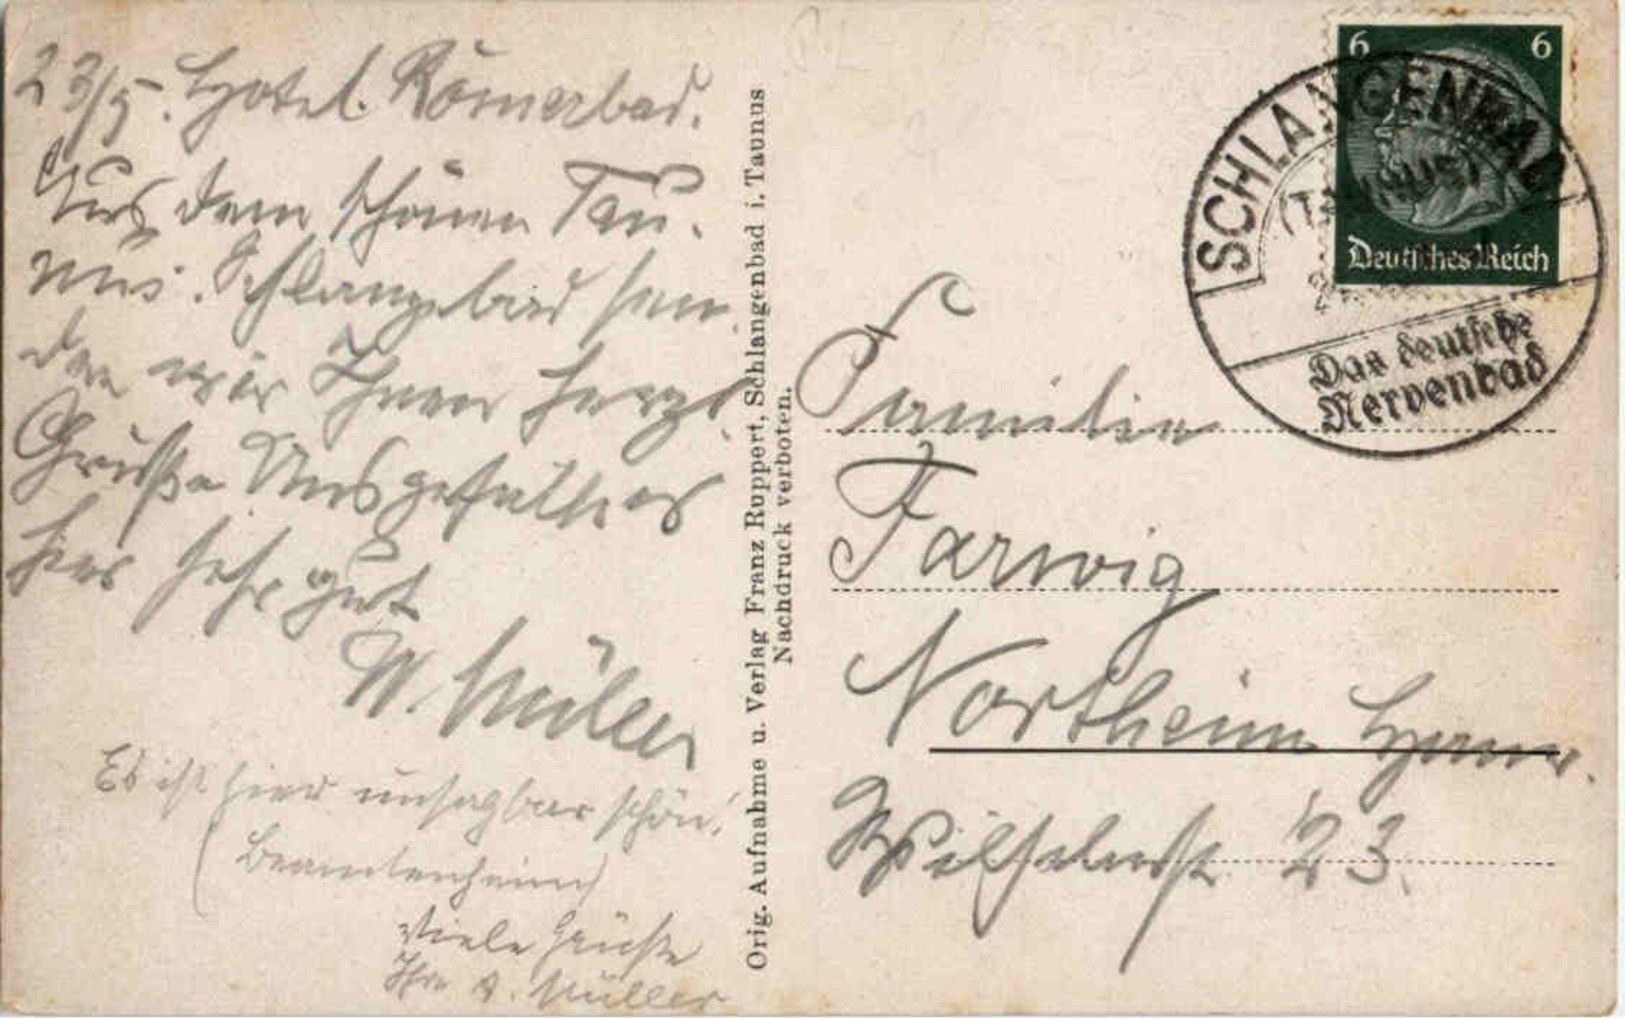 23/5. Hotel Römerbad.
Aus dem schönen Tau-
nus. Schlangebad sen-
den wir Ihnen herzl.
Grüße Uns gefällt es
hier sehr gut
W. Müller
Es ist hier unsagbar schön!
(Beamtenheim)
Viele Grüße
Ihre A. Müller
Orig. Aufnahme u. Verlag Franz Ruppert, Schlangenbad i. Taunus
Nachdruck verboten.
6 6
Deutsches Reich
SCHLANGENBAD
(TAUNUS)
Das deutsche
Nervenbad
Familie
Farwig
Northeim Hann.
23.